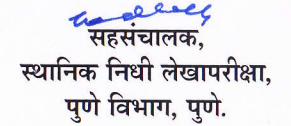 सहसंचालक,
स्थानिक निधी लेखापरीक्षा,
पुणे विभाग, पुणे.